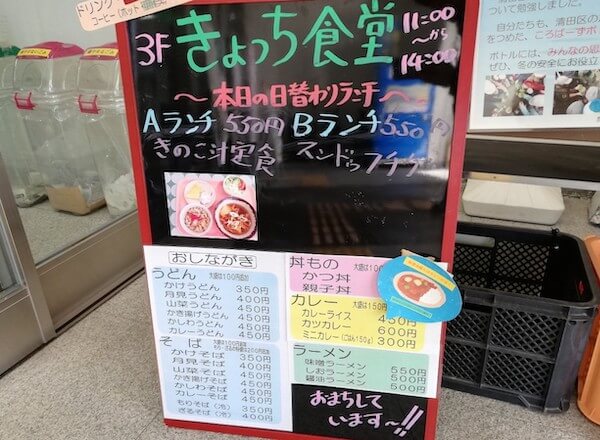 ドリンク
コーヒー(ホット
3F きょっち食堂
11:00
~から
14:00
~本日の日替わりランチ~
Aランチ 550円 Bランチ 550円
きのこ汁定食 スンドゥブチゲ
おしながき
うどん 大盛は100円追加
かけうどん 350円
月見うどん 400円
山菜うどん 450円
かき揚げうどん 450円
かしわうどん 450円
カレーうどん 450円
そば
かけそば 350円
月見そば 400円
山菜そば 450円
かき揚げそば 450円
かしわそば 450円
カレーそば 450円
もりそば(冷) 350円
ざるそば(冷) 400円
丼もの 大盛は100
かつ丼
親子丼
カレー 大盛は150円
カレーライス 450
カツカレー 600円
ミニカレー(ごはん150g) 300円
ラーメン
味噌ラーメン 550円
しおラーメン 500円
醤油ラーメン 500円
おまちして
います~!!
ついて勉強しました。
自分たちも、清田区の
をつめた、ころばーずボ
ボトルには、みんなの思
ぜひ、冬の安全にお役立